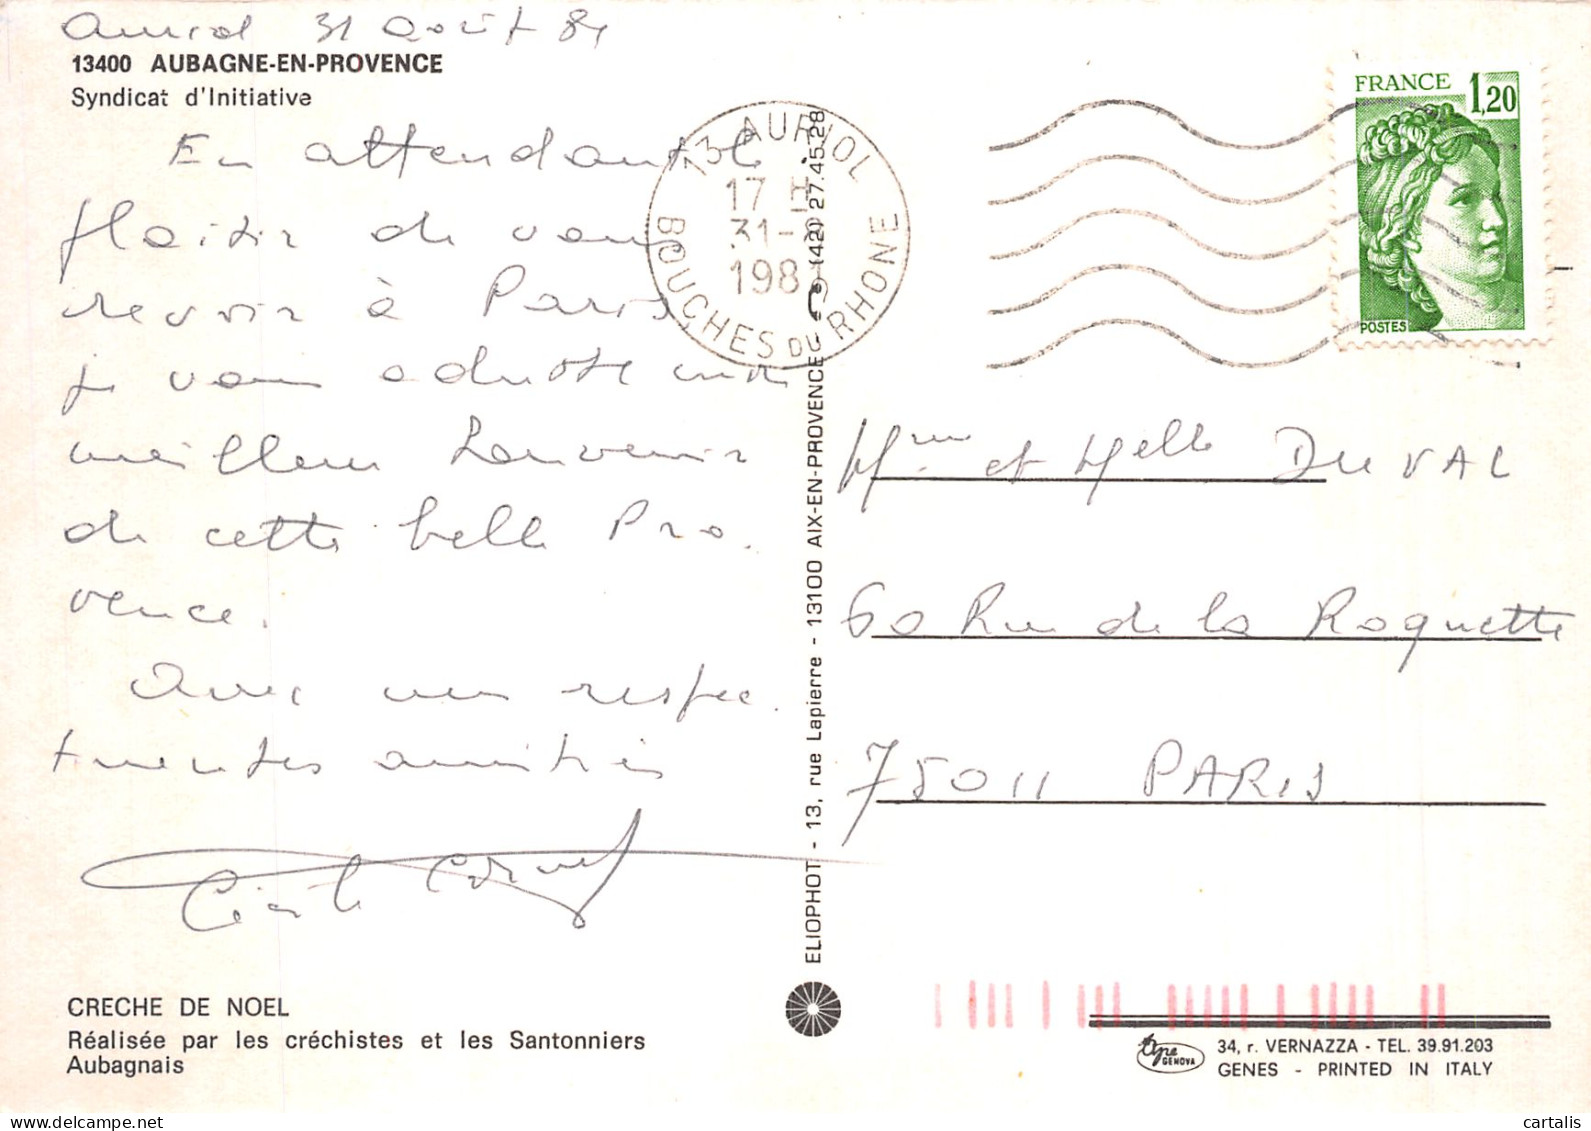 Auriol 31 Août 81
13400 AUBAGNE-EN-PROVENCE
Syndicat d'Initiative
En attendant le
plaisir de vous
revoir à Paris
je vous adresse mon
meilleur souvenir
de cette belle Pro.
vence.
Avec mes respec.
tueuses amitiés
CRECHE DE NOEL
Réalisée par les créchistes et les Santonniers
Aubagnais
13 AURIOL
17 H
31-8
1981
BOUCHES DU RHONE
ELIOPHOT - 13, rue Lapierre - 13100 AIX-EN-PROVENCE - (42) 27.45.28
FRANCE 1,20
POSTES
Mme et Melle DUVAL
60 Rue de la Roquette
75011 PARIS
GENOVA
34, r. VERNAZZA - TEL. 39.91.203
GENES - PRINTED IN ITALY
cartalis